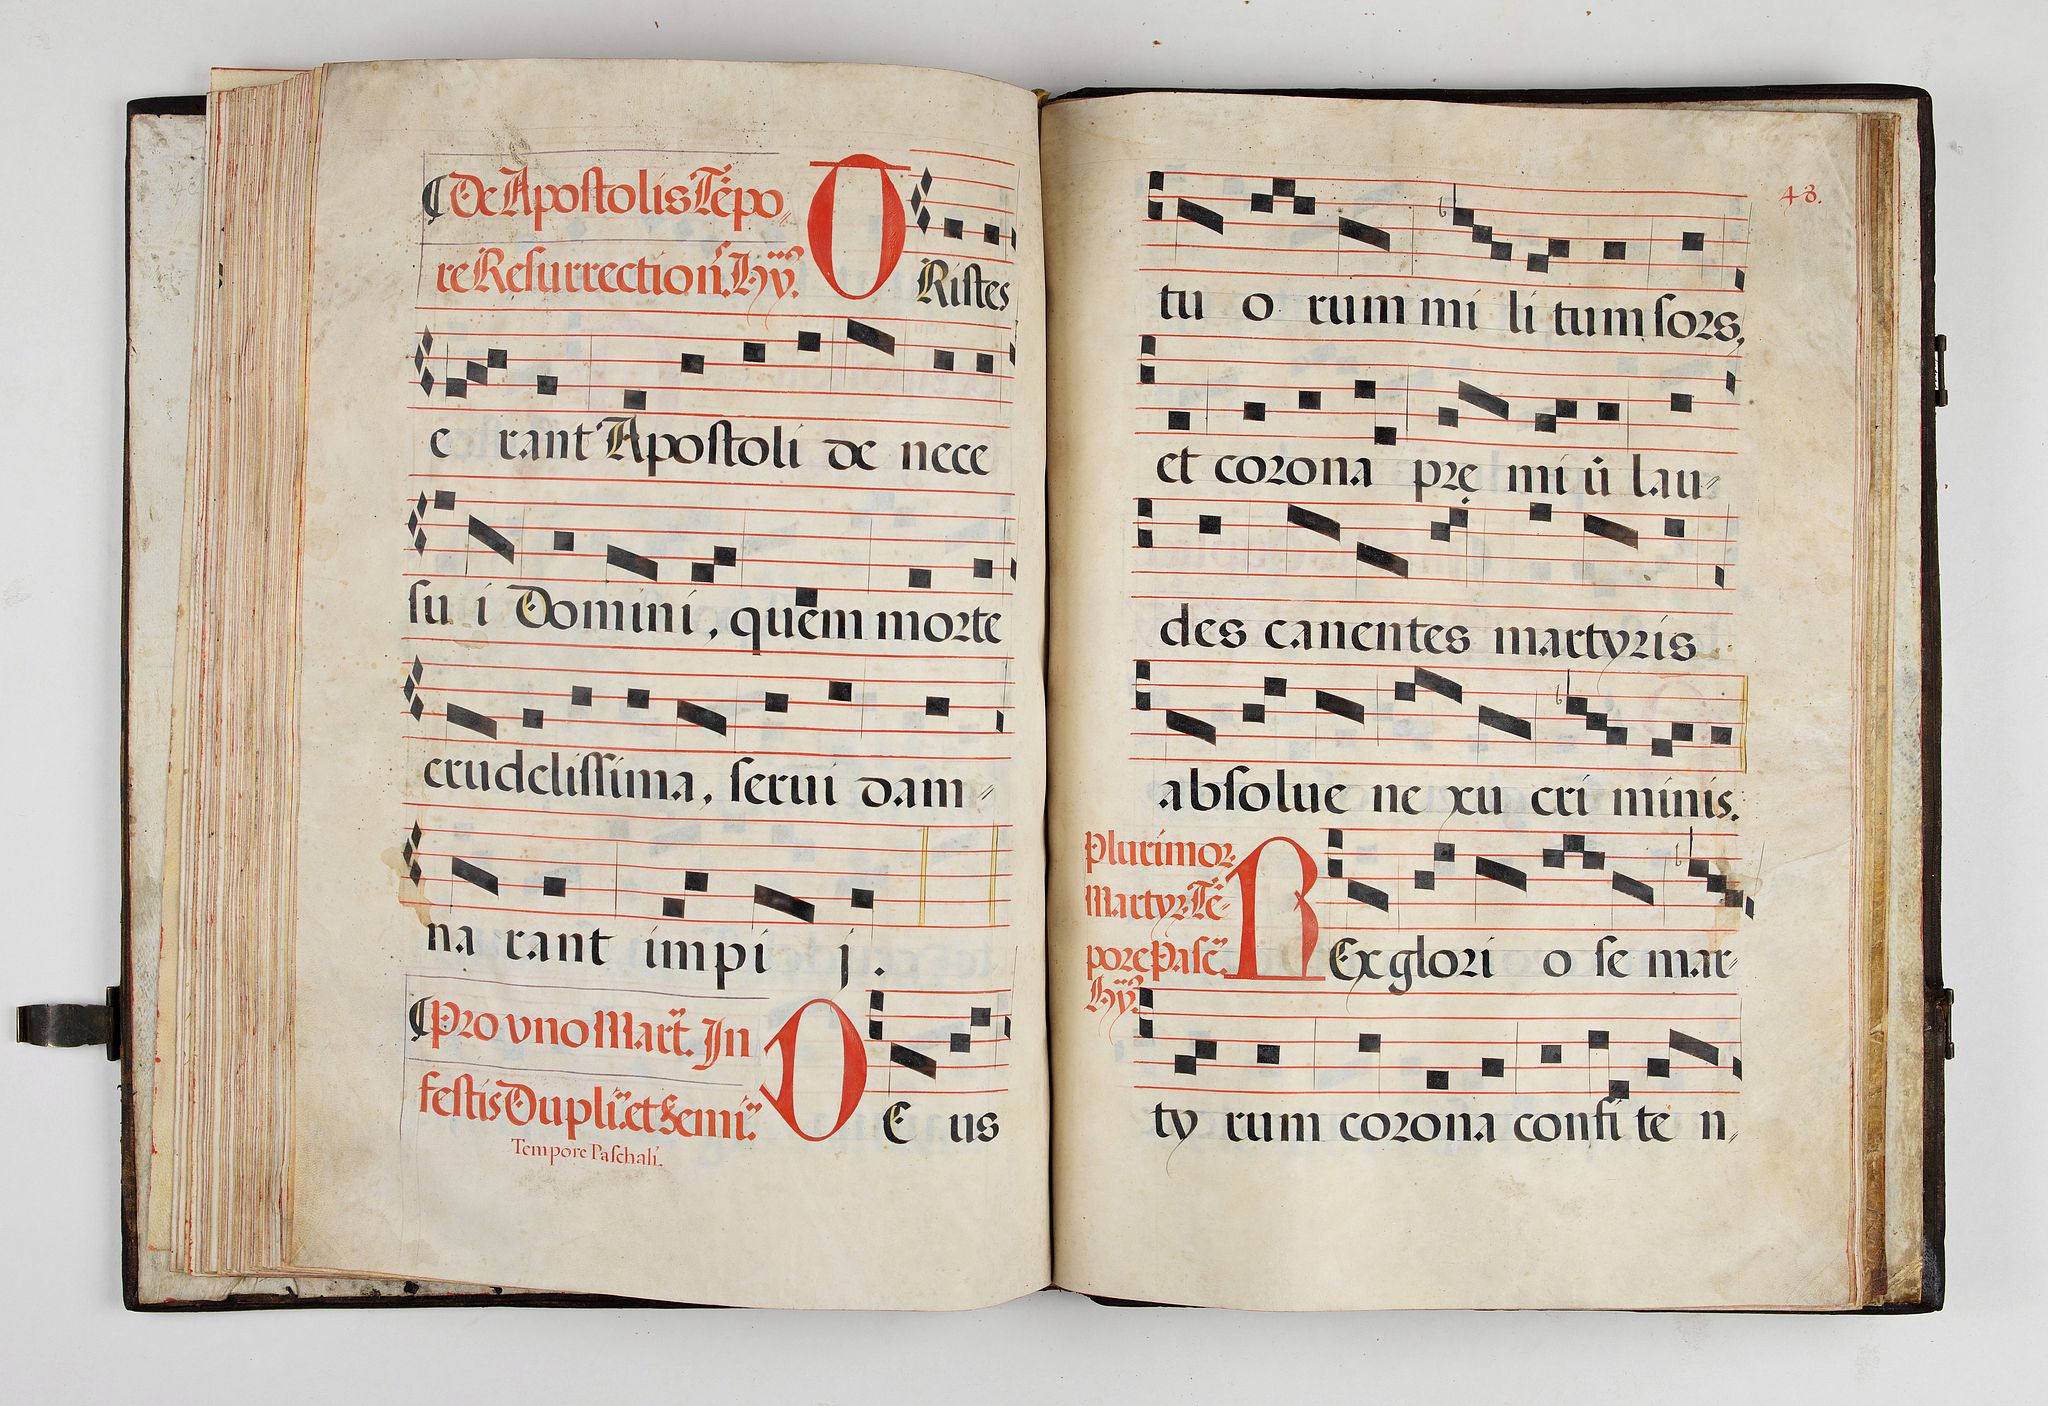 ¶ De Apostolis Tẽpo=
re Resurrection̉. Hỹ.
TRistes
e rant Apostoli de nece
su i Domini, quem morte
crudelissima, serui dam=
na rant impi j.
¶ Pro vno Mart̃. In
festis Dupli. et Semi.
Tempore Paschali.
DE us
48.
tu o rum mi li tum sors,
et corona prę mi ũ lau=
des canentes martyris
absolue ne xu cri minis.
Plurimor.
Martyr. Tẽ=
pore Pasc̃.
Hỹ.
REx glori o se mar=
ty rum corona confi te n=